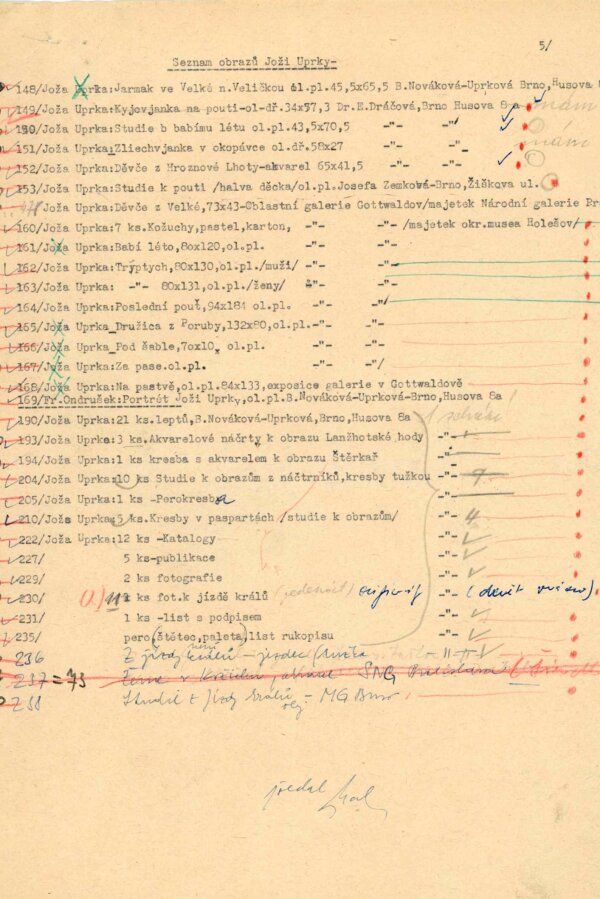 5/
Seznam obrazů Joži Uprky-
148/Joža Uprka:Jarmak ve Velké n.Veličkou ol.pl.45,5x65,5 B.Nováková-Uprková Brno,Husova 8a
149/Joža Uprka:Kyjovjanka na pouti-ol-dř.34x57,3 Dr.E.Dráčová,Brno Husova 8 a
150/Joža Uprka:Studie b babímu létu ol.pl.43,5x70,5 -"- -"-
151/Joža Uprka:Zliechvjanka v okopávce ol.dř.58x27 -"- -"- mám
152/Joža Uprka:Děvče z Hroznové Lhoty-akvarel 65x41,5 -"- -"-
153/Joža Uprka:Studie k pouti /halva děcka/ol.pl.Josefa Zemková-Brno,Žižkova ul.
Joža Uprka:Děvče z Velké,73x43-Oblastní galerie Gottwaldov/majetek Národní galerie Pr
160/Joža Uprka:7 ks.Kožuchy,pastel,karton, -"- -"- /majetek okr.musea Holešov/
161/Joža Uprka:Babí léto,80x120,ol.pl. -"- -"-
162/Joža Uprka:Tryptych,80x130,ol.pl./muži/ -"- -"-
163/Joža Uprka: -"- 80x131,ol.pl./ženy/ -"- -"-
164/Joža Uprka:Poslední pouť,94x184 ol.pl. -"- -"-
165/Joža Uprka_Družica z Poruby,132x80,ol.pl.-"- -"-
166/Joža Uprka_Pod šable,70x10, ol.pl. -"- -"-
167/Joža Uprka:Za pase.ol.pl. -"- -"-
168/Joža Uprka:Na pastvě,ol.pl.84x133,exposice galerie v Gottwaldově
169/Fr.Ondrušek:Portrét Joži Uprky,ol.pl.B.Nováková-Uprková-Brno,Husova 8a
190/Joža Uprka:21 ks.leptů,B.Nováková-Uprková,Brno,Husova 8a
193/Joža Uprka:3 ks.Akvarelové náčrty k obrazu Lanžhotské hody -"-
194/Joža Uprka:1 ks kresba s akvarelem k obrazu Štěrkař -"-
204/Joža Uprka:10 ks Studie k obrazům z náčtrníků,kresby tužkou -"- 9
205/Joža Uprka:1 ks -Perokresba -"-
210/Joža Uprka:5 ks.Kresby v paspartách /studie k obrazům/ -"- 4
222/Joža Uprka:12 ks -Katalogy -"-
227/ 5 ks-publikace -"-
229/ 2 ks fotografie -"-
230/ ks fot.k jízdě králů (jedenáct) -"-
231/ 1 ks -list s podpisem -"-
235/ pero(štětec,paleta)list rukopisu -"-
236 Z jízdy králů - jezdec
237 = 73 SNG Bratislava
238 Studie z jízdy králů - MG Brno
olej
předal